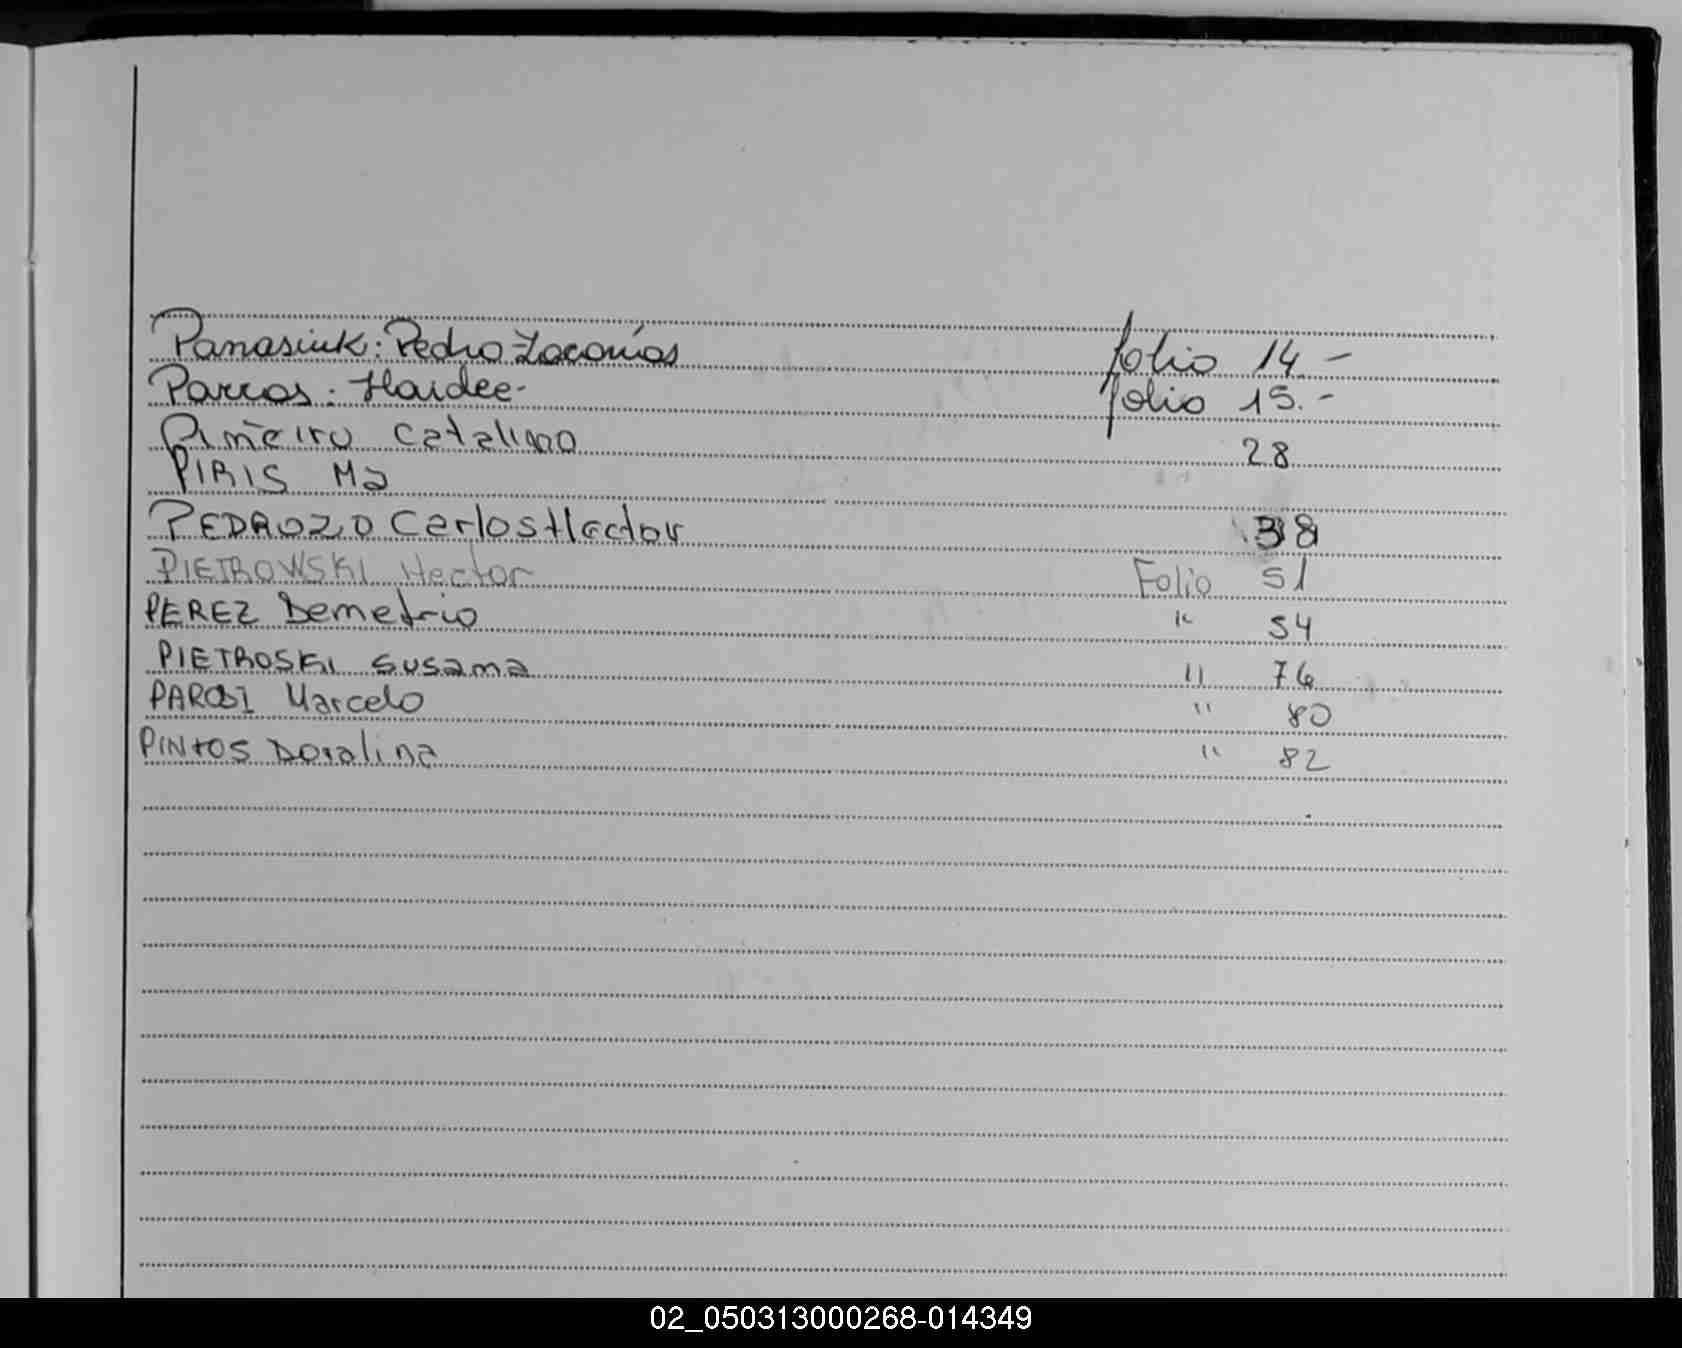 Panasiuk: Pedro Zacarías folio 14.-
Parras: Haidee- folio 15.-
Piñeiro Catalino 28
PIRIS Ma
PEDROZO Carlos Hector 38
PIETROWSKI Hector Folio 51
PEREZ Demetrio " 54
PIETROSKI Susana " 76
Marcelo " 80
PINTOS Doralina " 82
02_050313000268-014349